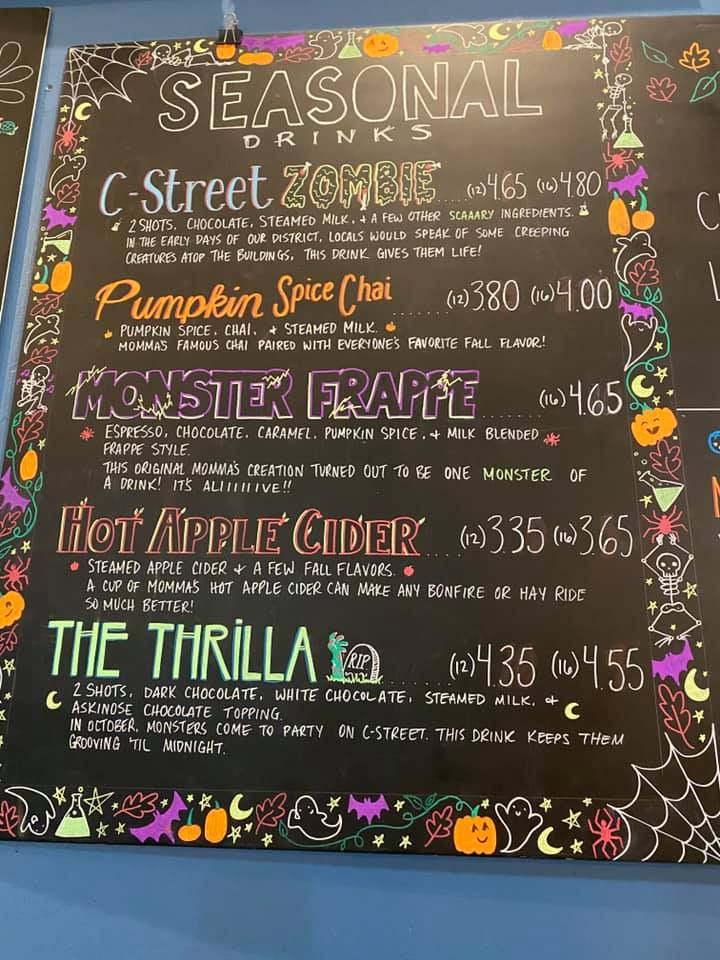 SEASONAL
DRINKS
C-Street ZOMBIE (12) 4.65 (16) 4.80
2 SHOTS, CHOCOLATE, STEAMED MILK, + A FEW OTHER SCAAARY INGREDIENTS.
IN THE EARLY DAYS OF OUR DISTRICT, LOCALS WOULD SPEAK OF SOME CREEPING
CREATURES ATOP THE BUILDINGS, THIS DRINK GIVES THEM LIFE!
Pumpkin Spice Chai ..... (12) 3.80 (16) 4.00
PUMPKIN SPICE, CHAI, + STEAMED MILK.
MOMMA'S FAMOUS CHAI PAIRED WITH EVERYONE'S FAVORITE FALL FLAVOR!
MONSTER FRAPPE ....... (16) 4.65
ESPRESSO, CHOCOLATE, CARAMEL, PUMPKIN SPICE, + MILK BLENDED
FRAPPE STYLE.
THIS ORIGINAL MOMMA'S CREATION TURNED OUT TO BE ONE MONSTER OF
A DRINK! IT'S ALIIIIIIVE!!
HOT APPLE CIDER .... (12) 3.35 (16) 3.65
STEAMED APPLE CIDER + A FEW FALL FLAVORS.
A CUP OF MOMMA'S HOT APPLE CIDER CAN MAKE ANY BONFIRE OR HAY RIDE
SO MUCH BETTER!
THE THRILLA RIP ........ (12) 4.35 (16) 4.55
2 SHOTS, DARK CHOCOLATE, WHITE CHOCOLATE, STEAMED MILK, +
ASKINOSE CHOCOLATE TOPPING.
IN OCTOBER, MONSTERS COME TO PARTY ON C-STREET. THIS DRINK KEEPS THEM
GROOVING 'TIL MIDNIGHT.